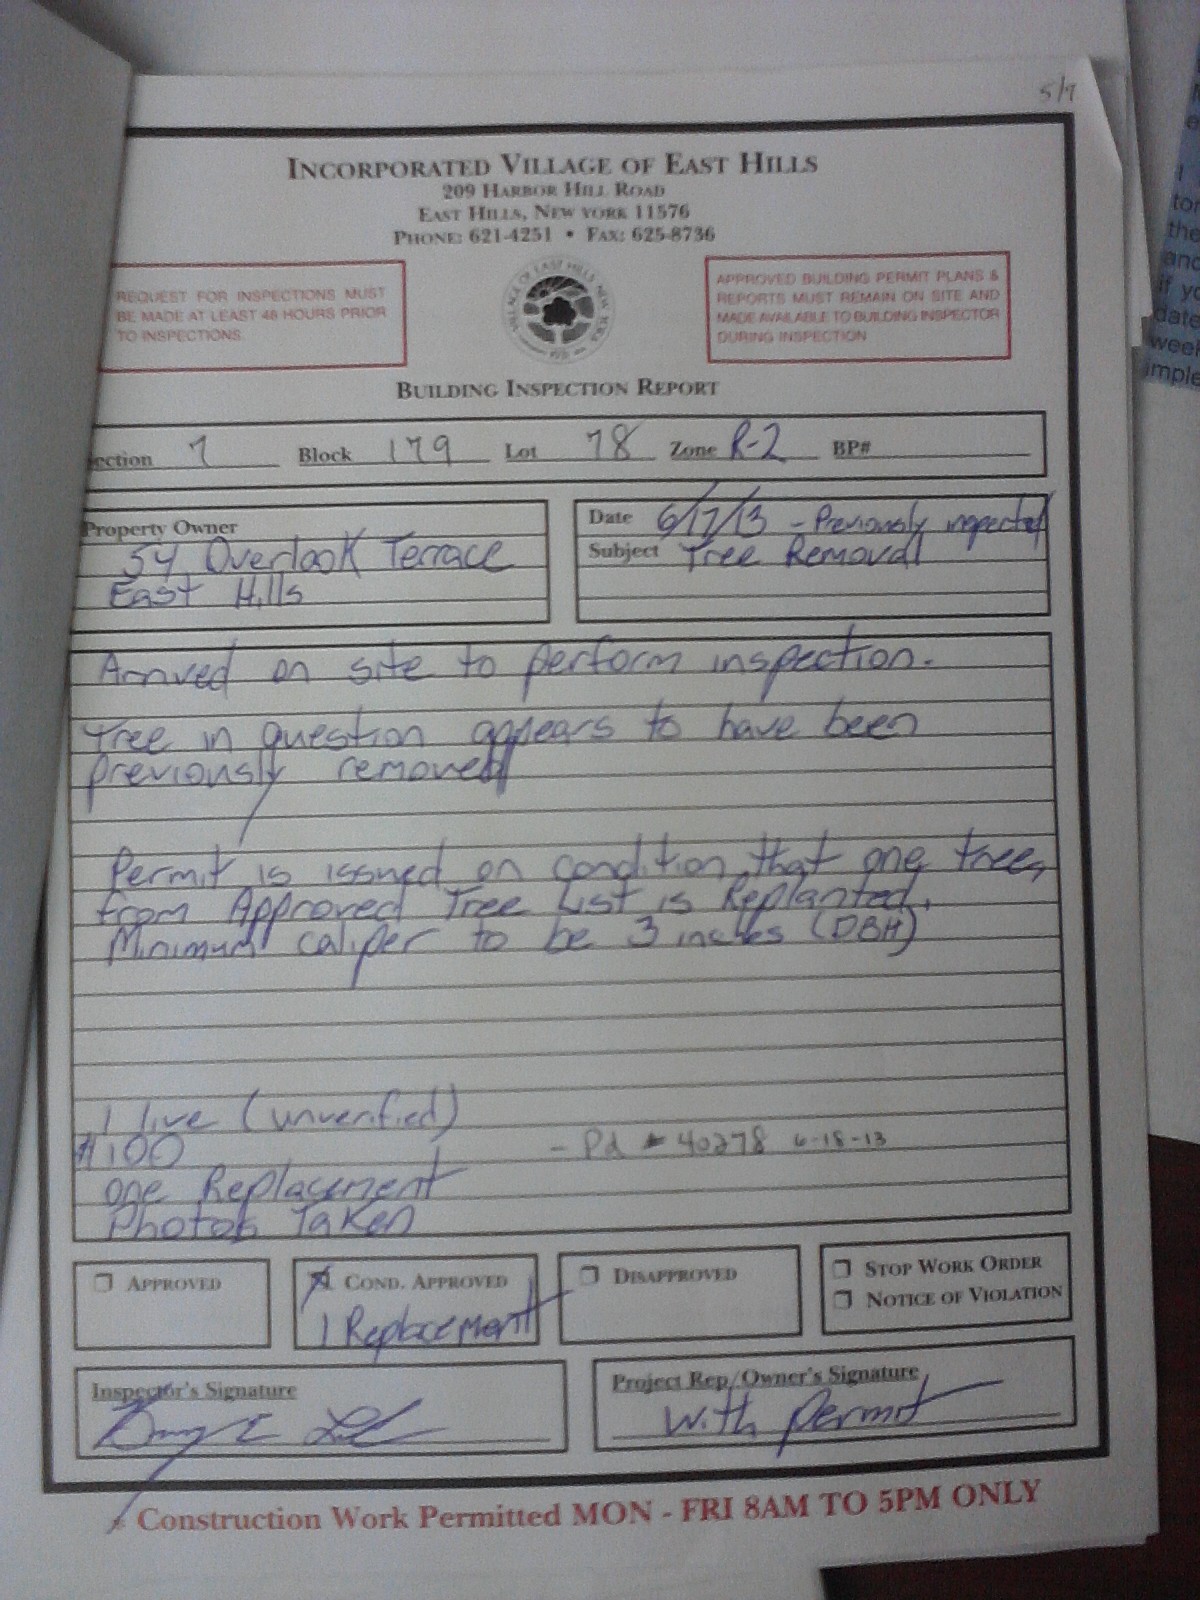 5/7
INCORPORATED VILLAGE OF EAST HILLS
209 HARBOR HILL ROAD
EAST HILLS, NEW YORK 11576
PHONE: 621-4251 • FAX: 625-8736
REQUEST FOR INSPECTIONS MUST
BE MADE AT LEAST 48 HOURS PRIOR
TO INSPECTIONS.
VILLAGE OF EAST HILLS NEW YORK
1931
APPROVED BUILDING PERMIT PLANS &
REPORTS MUST REMAIN ON SITE AND
MADE AVAILABLE TO BUILDING INSPECTOR
DURING INSPECTION
BUILDING INSPECTION REPORT
ection 7 Block 179 Lot 78 Zone R-2 BP#
Property Owner
54 Overlook Terrace
East Hills
Date 6/17/13 - Previously inspected
Subject Tree Removal
Arrived on site to perform inspection.
Tree in question appears to have been
previously removed
Permit is issued on condition that one tree,
from Approved Tree List is Replanted.
Minimum caliper to be 3 inches (DBH)
1 live (unverified)
$100 - Pd # 40278 6-18-13
one Replacement
Photos Taken
APPROVED
COND. APPROVED
1 Replacement
DISAPPROVED
STOP WORK ORDER
NOTICE OF VIOLATION
Inspector's Signature
Project Rep/Owner's Signature
With permit
Construction Work Permitted MON - FRI 8AM TO 5PM ONLY
tor
the
and
if yo
date
week
imple